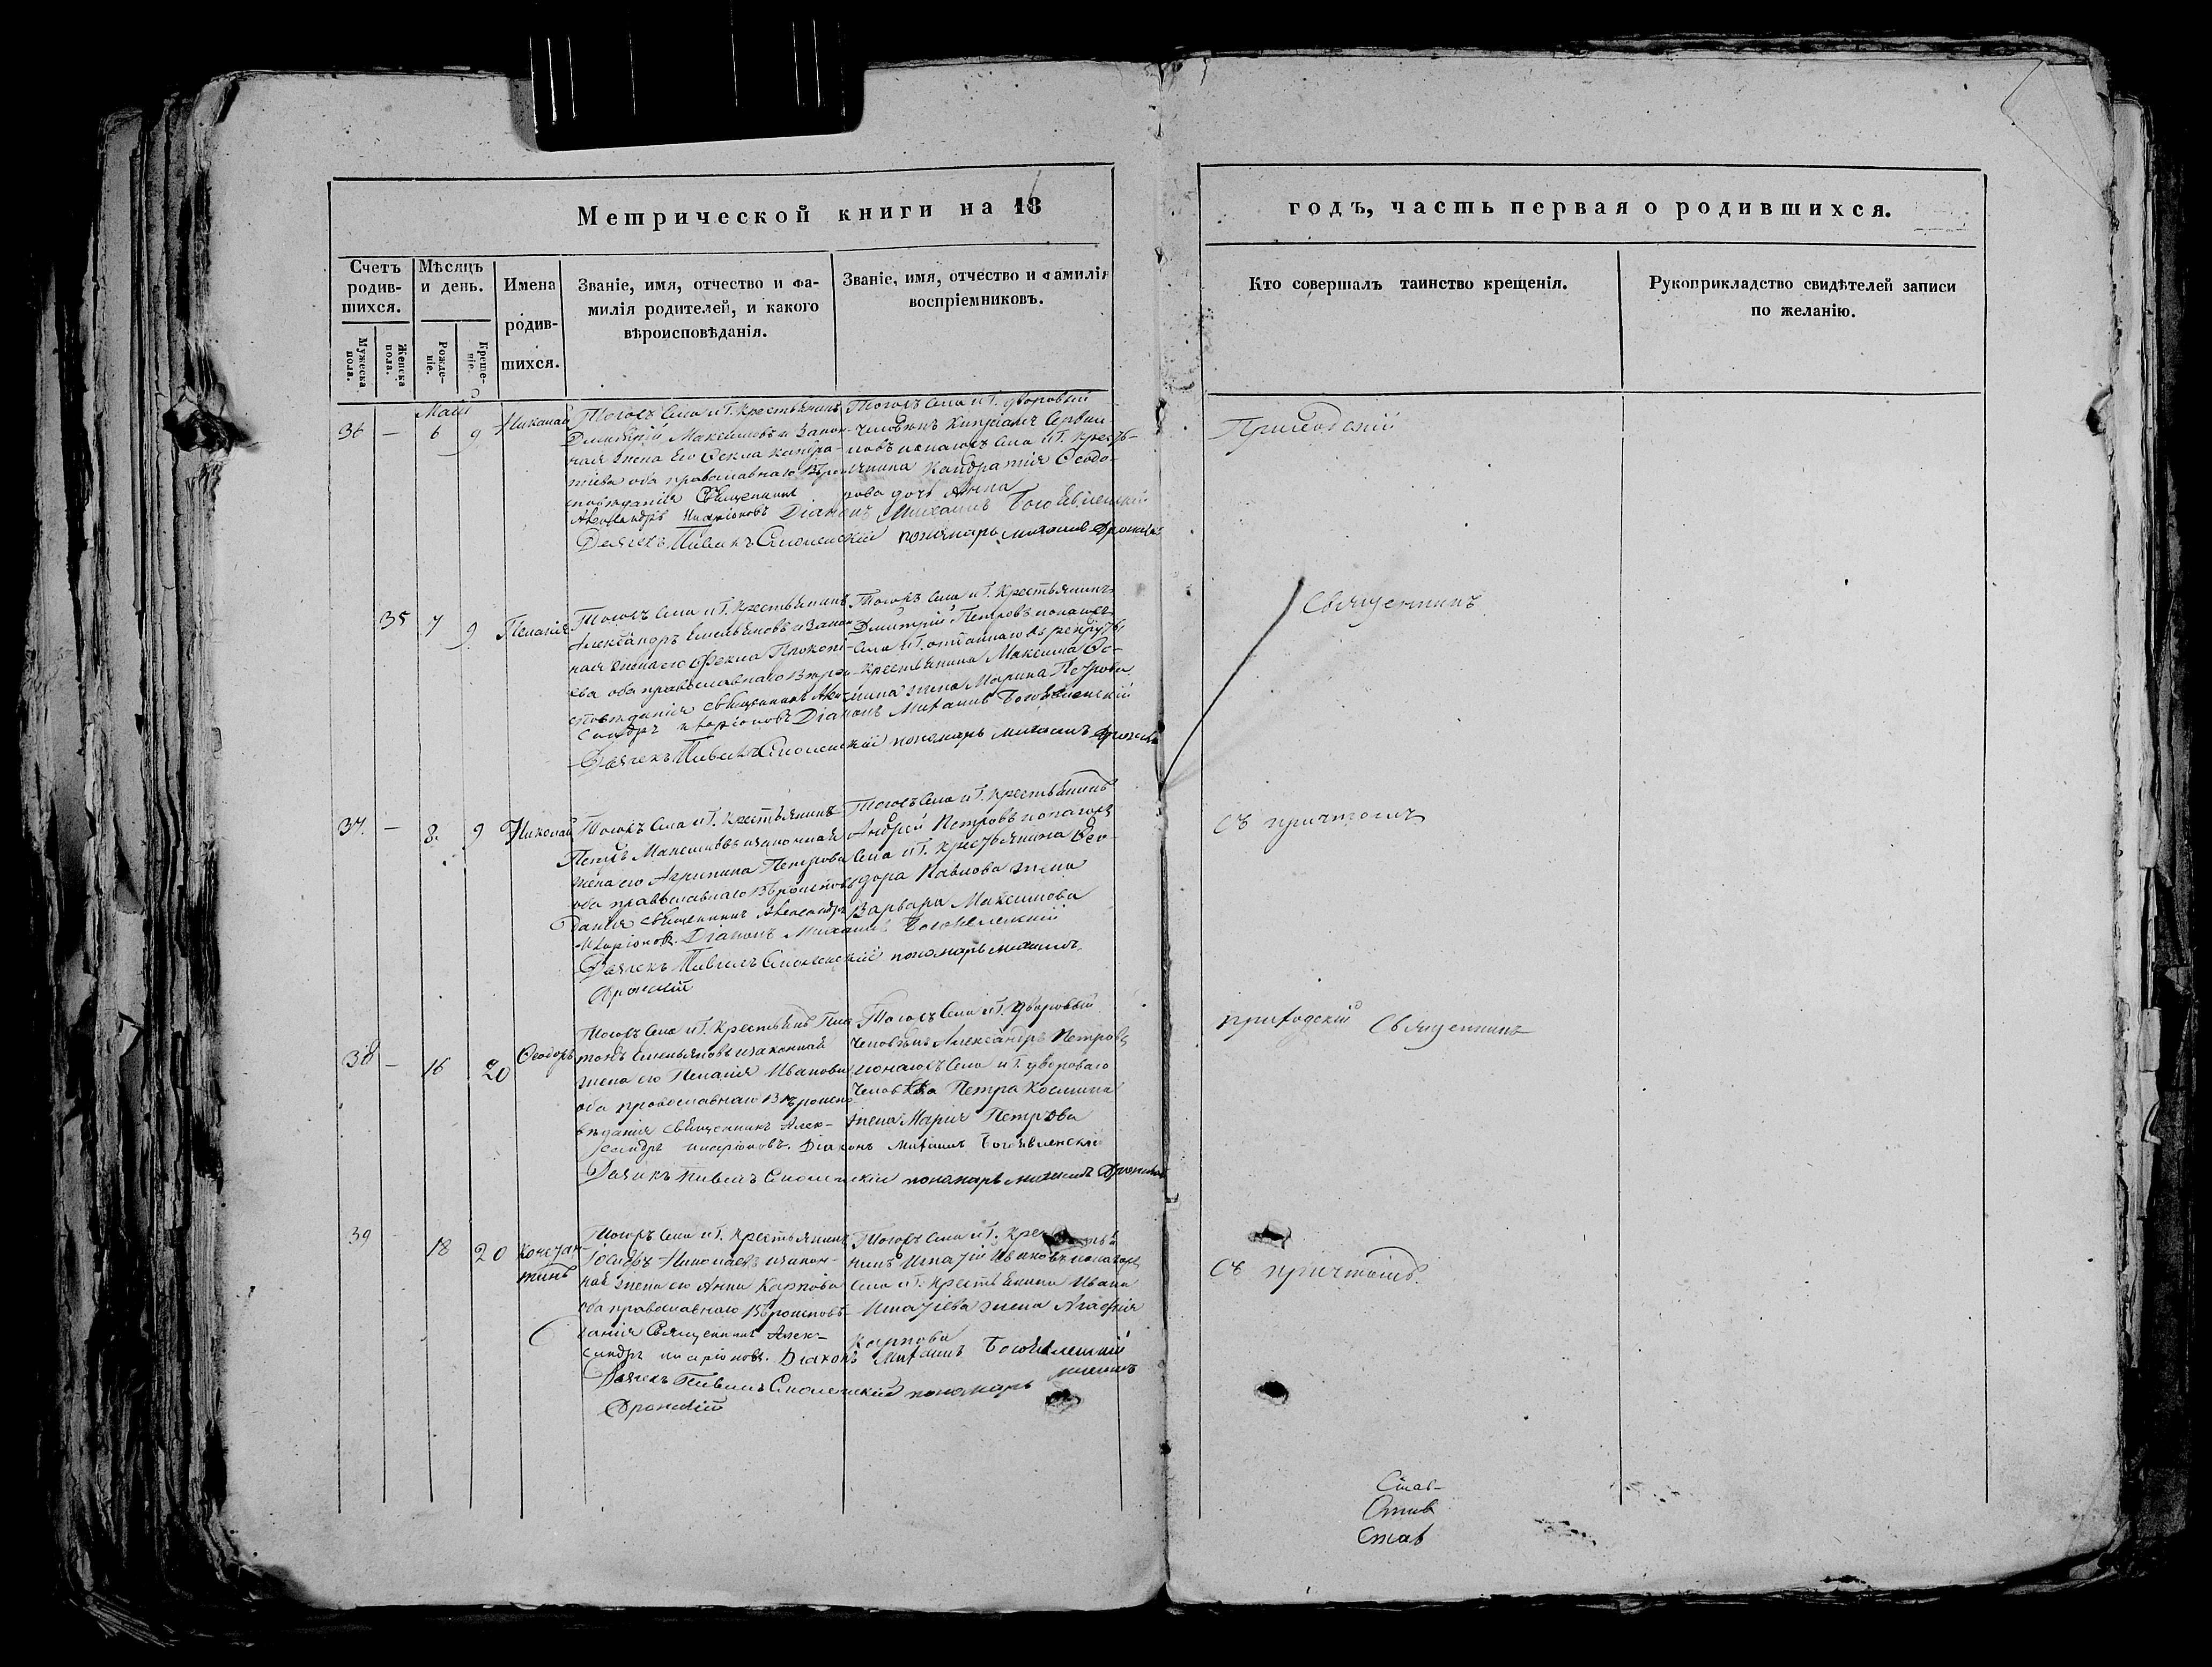 Метрической книги на 18
годъ, часть первая о родившихся.
Счетъ родив-шихся.
Мѣсяцъ и день.
Имена родив-шихся.
Званіе, имя, отчество и фа-
милія родителей, и какого
вѣроисповѣданія.
Званіе, имя, отчество и фамилія
воспріемниковъ.
Кто совершалъ таинство крещенія.
Рукоприкладство свидѣтелей записи
по желанію.
Мужеска пола.
Женска пола.
Рожде-ніе.
Креще-ніе.
Маій
36 — 6 9 Николай
Тогожъ Села и Г. Крестьянинъ
Дмитрій Максимовъ и Закон-
ная жена Его Фекла Кандра-
тіева оба православнаго Вѣрои
сповѣданія Священникъ
Александръ Иларіоновъ Діаконъ Михаилъ Богоявленскій
Дьячекъ Павелъ Смоленскій пономарь михаилъ
Тогожъ Села и Г. дворовый
человѣкъ Кипріанъ
новъ и онагожъ Села и Г. Кресть-
янина Кандратія Феодо-
рова дочь Анна
Приходскій
35 7 9 Пелагія
Тогожъ Села и Г. Крестьянинъ
Александръ Емельяновъ и Закон
ная жена его Фекла Прокопі-
ева оба православнаго Вѣрои
сповѣданія священникъ Алек
сандръ Иларіоновъ Діаконъ Михаилъ Богоявленскій
Дьячекъ Павелъ Смоленскій пономарь михаилъ
Тогожъ Села и Г. Крестьянинъ
Дмитрій Петровъ и онагожъ
Села и Г. отданнаго въ рекруты
Крестьянина Максима
жена Марина Петрова
Священникъ
37. — 8. 9 Николай
Тогожъ Села и Г. Крестьянинъ
Петръ Максимовъ и законная
жена его Агрипина Петрова
оба православнаго Вѣроисповѣ
данія священникъ Александръ
Иларіоновъ. Діаконъ Михаилъ Богоявленскій
Дьячекъ Павелъ Смоленскій пономарь михаилъ
Тогожъ Села и Г. Крестьянинъ
Андрей Петровъ и онагожъ
Села и Г. Крестьянина Фео-
дора Павлова жена
Варвара Максимова
съ причтомъ
38 — 16 20 Феодоръ
Тогожъ Села и Г. Крестьянъ Пла
тонъ Емельяновъ и законная
жена его Пелагія Иванова
оба православнаго Вѣроиспо
вѣданія священникъ Алек-
сандръ Иларіоновъ. Діаконъ Михаилъ Богоявленскій
Дьячекъ Павелъ Смоленскій пономарь михаилъ
Тогожъ Села и Г. дворовый
человѣкъ Александръ Петровъ
и онагожъ Села и Г. двороваго
человѣка Петра Космина
жена Марія Петрова
приходскій Священникъ
39 — 18 20 Констан-
тинъ
Тогожъ Села и Г. Крестьянинъ
Іосифъ Николаевъ и закон-
ная жена его Анна Карпова
оба православнаго Вѣроисповѣ-
данія Священникъ Алек-
сандръ Иларіоновъ. Діаконъ Михаилъ Богоявленскій
Дьячекъ Павелъ Смоленскій пономарь михаилъ
Тогожъ Села и Г. Крестья
нинъ Игнатій Ивановъ и онагожъ
Села и Г. Крестьянина Ивана
Игнатіева жена Агафія
Карпова
съ причтомъ.